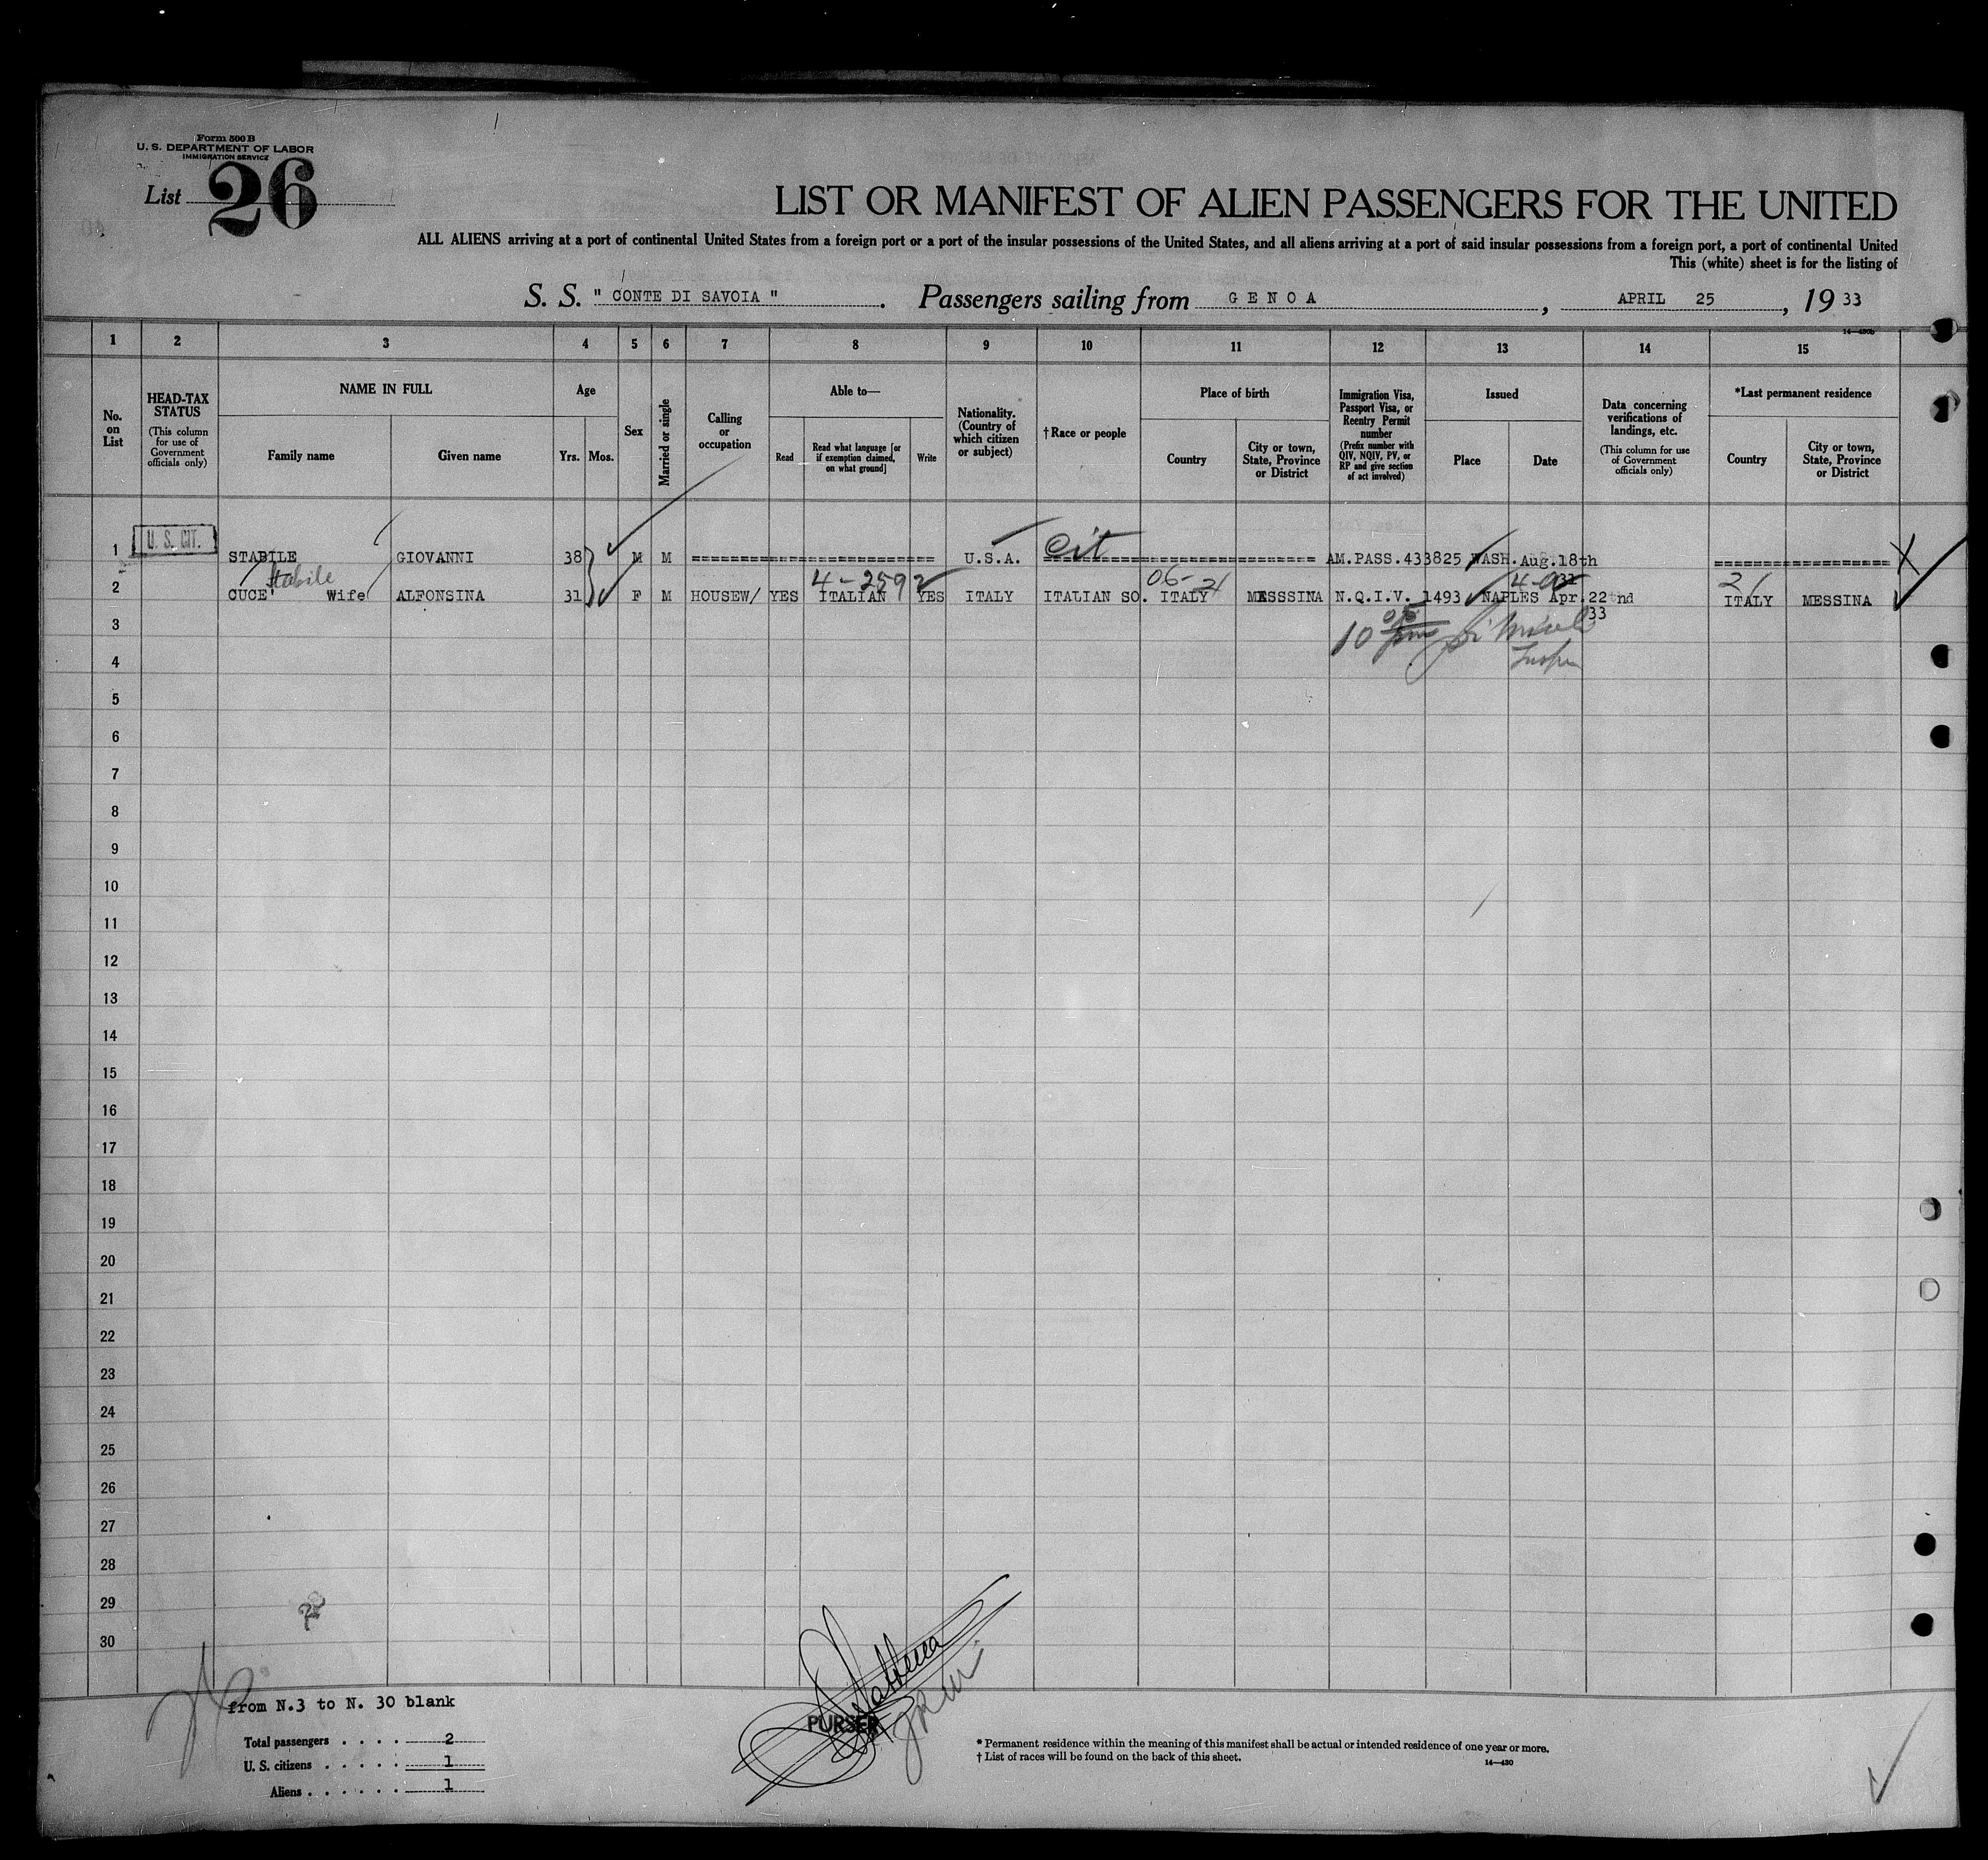 Form 500 B
U. S. DEPARTMENT OF LABOR
IMMIGRATION SERVICE
List 26
LIST OR MANIFEST OF ALIEN PASSENGERS FOR THE UNITED
ALL ALIENS arriving at a port of continental United States from a foreign port or a port of the insular possessions of the United States, and all aliens arriving at a port of said insular possessions from a foreign port, a port of continental United
This (white) sheet is for the listing of
S. S. " CONTE DI SAVOIA ". Passengers sailing from GENOA, APRIL 25, 19 33
14—430b
1 2 3 4 5 6 7 8 9 10 11 12 13 14 15
No. on List
HEAD-TAX STATUS
(This column for use of Government officials only)
NAME IN FULL
Family name
Given name
Age
Yrs.
Mos.
Sex
Married or single
Calling or occupation
Able to—
Read
Read what language [or if exemption claimed, on what ground]
Write
Nationality. (Country of which citizen or subject)
† Race or people
Place of birth
Country
City or town, State, Province or District
Immigration Visa, Passport Visa, or Reentry Permit number
(Prefix number with QIV, NQIV, PV, or RP and give section of act involved)
Issued
Place
Date
Data concerning verifications of landings, etc.
(This column for use of Government officials only)
*Last permanent residence
Country
City or town, State, Province or District
1 U. S. CIT. STABILE GIOVANNI 38 M M U.S.A. Cit AM.PASS.433825 WASH. Aug.18th
Stabile 4-2592 06-21 4-0 21
2 CUCE' Wife ALFONSINA 31 F M HOUSEW/ YES ITALIAN YES ITALY ITALIAN SO. ITALY MESSSINA N.Q.I.V. 1493 NAPLES Apr.22 nd ITALY MESSINA
33
3
10 05 pm
4
5
6
7
8
9
10
11
12
13
14
15
16
17
18
19
20
21
22
23
24
25
26
27
28
29
30
from N.3 to N. 30 blank
Total passengers . . . . 2
U. S. citizens . . . . . 1
Aliens . . . . . . 1
PURSER
* Permanent residence within the meaning of this manifest shall be actual or intended residence of one year or more.
† List of races will be found on the back of this sheet.
14—430